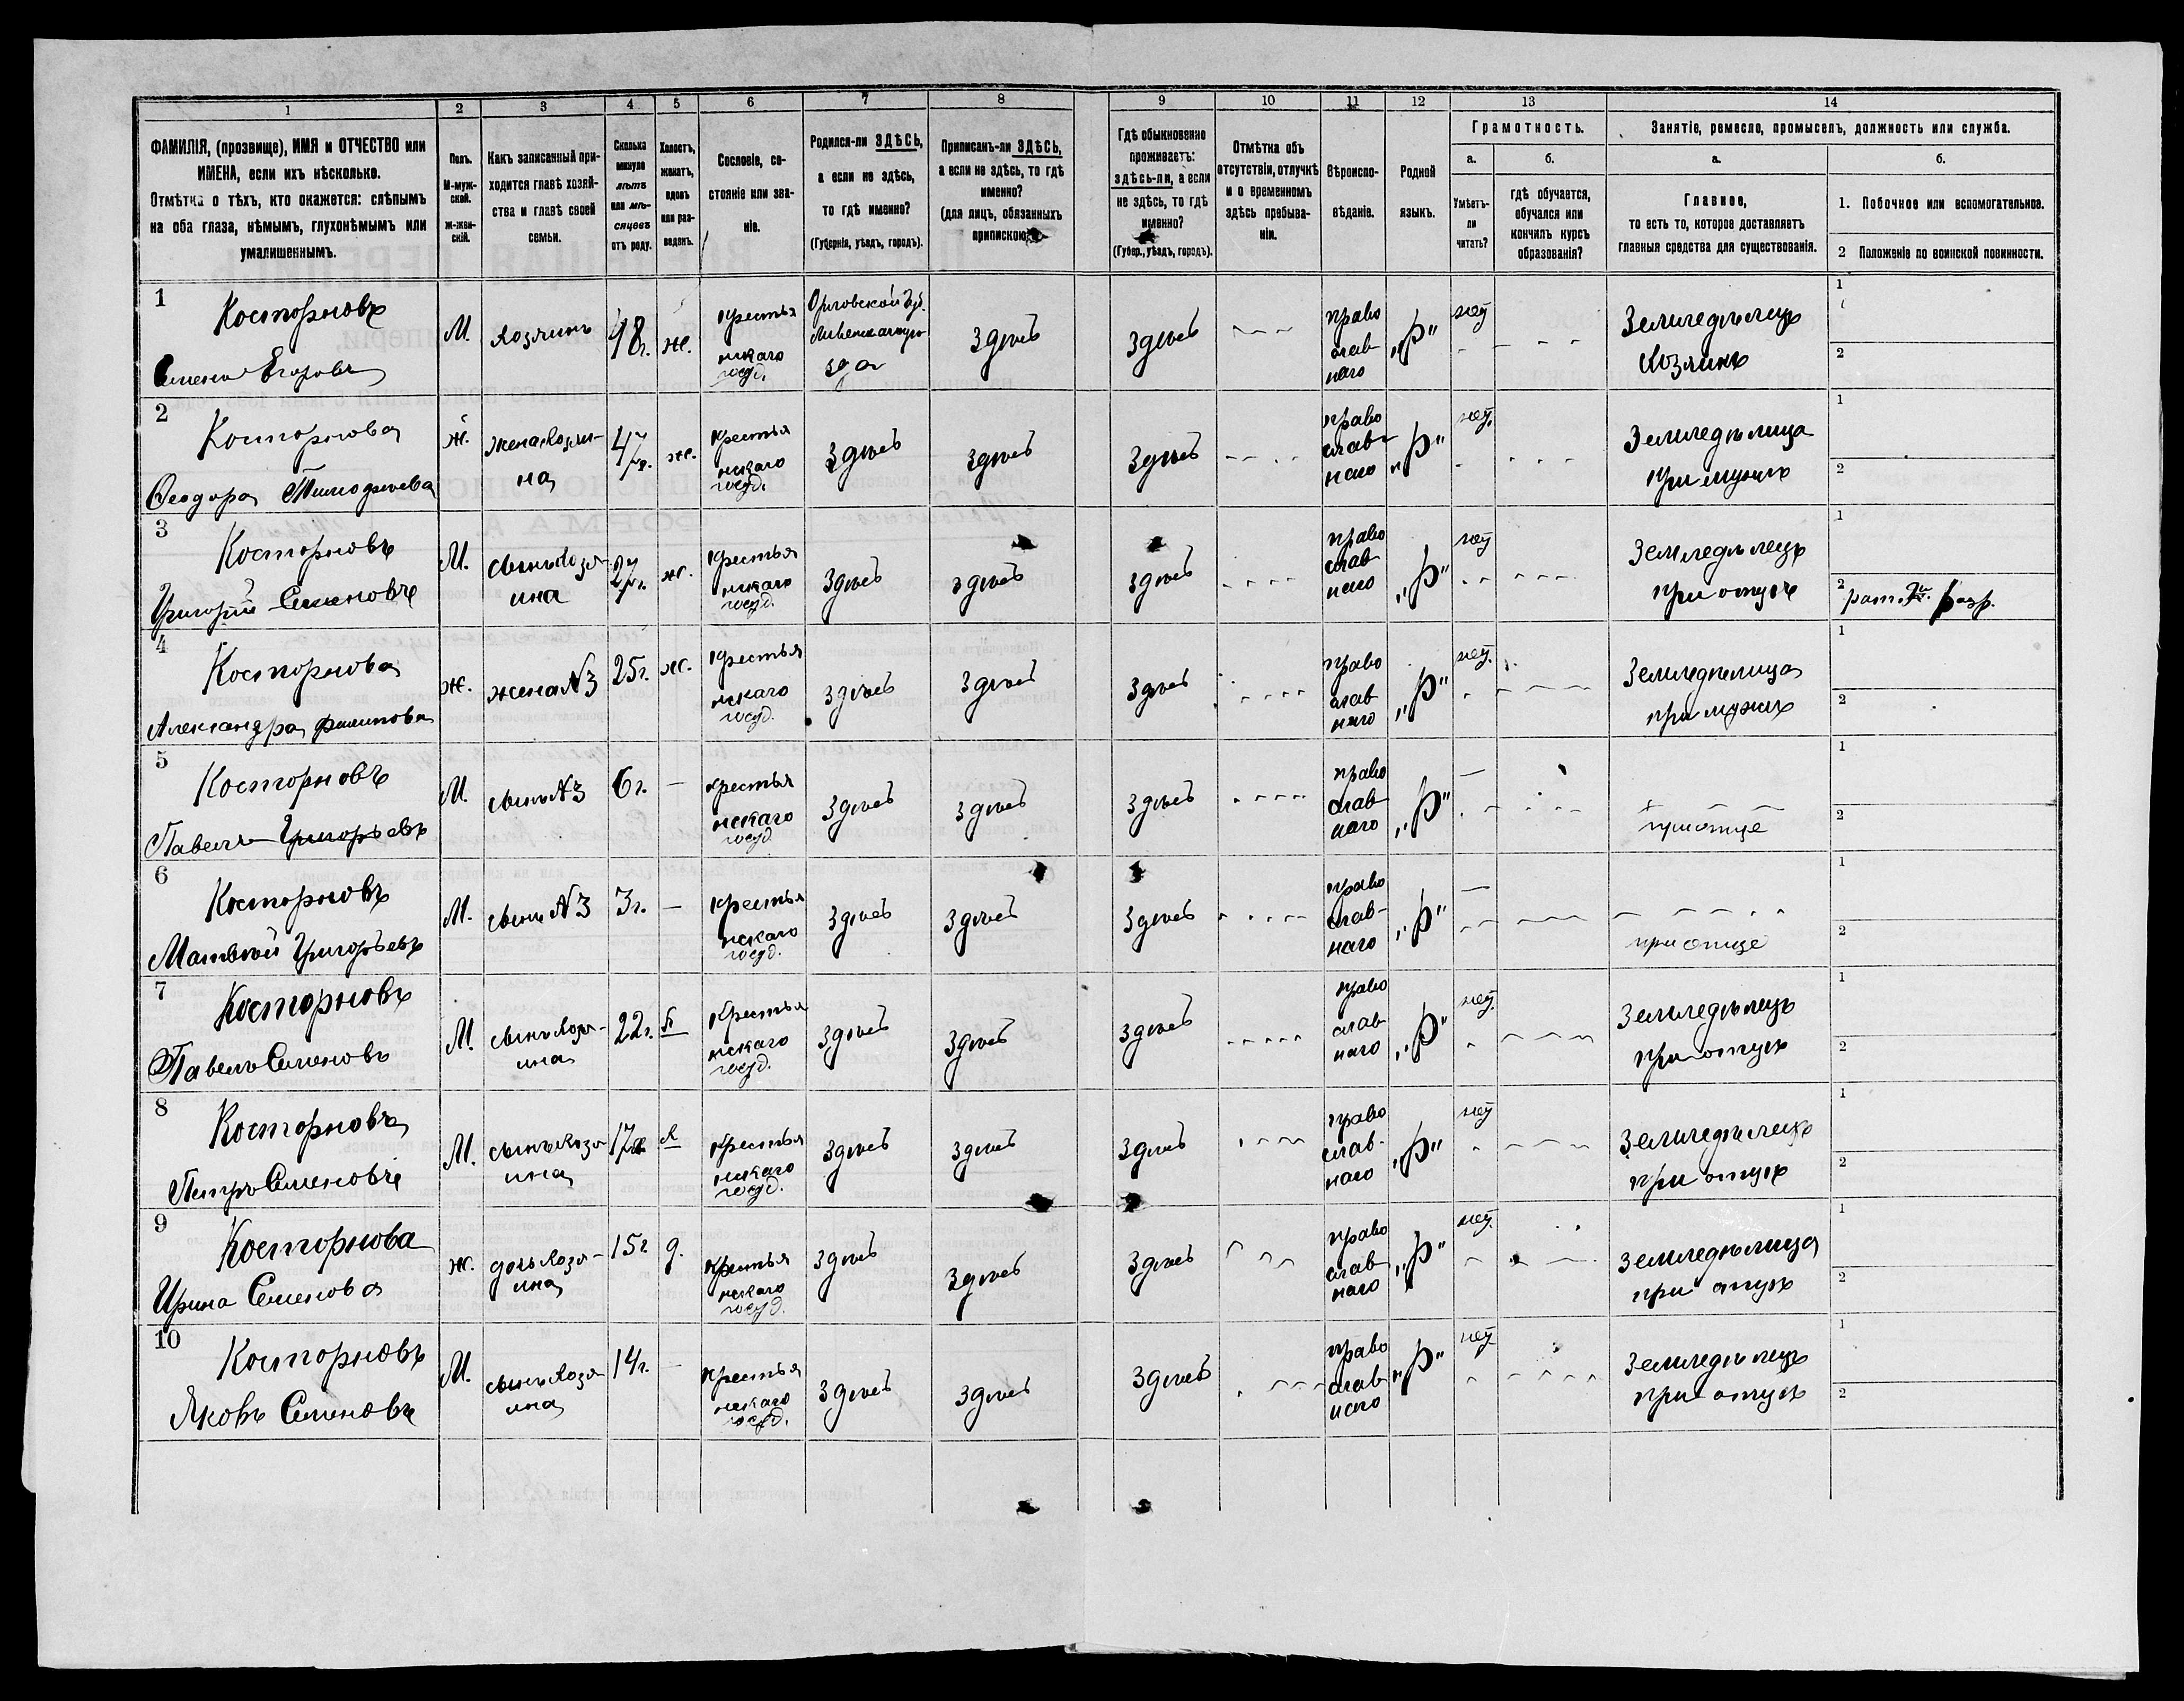 1 2 3 4 5 6 7 8 9 10 11 12 13 14
ФАМИЛІЯ, (прозвище), ИМЯ и ОТЧЕСТВО или
ИМЕНА, если ихъ нѣсколько.
Отмѣтка о тѣхъ, кто окажется: слѣпымъ
на оба глаза, нѣмымъ, глухонѣмымъ или
умалишеннымъ.
Полъ.
М-муж-
ской.
Ж-жен-
скій.
Какъ записанный при-
ходится главѣ хозяй-
ства и главѣ своей
семьи.
Сколько
минуло
лѣтъ
или мѣ-
сяцевъ
отъ роду.
Холостъ,
женатъ,
вдовъ
или раз-
веденъ.
Сословіе, со-
стояніе или зва-
ніе.
Родился-ли ЗДѢСЬ,
а если не здѣсь,
то гдѣ именно?
(Губернія, уѣздъ, городъ).
Приписанъ-ли ЗДѢСЬ,
а если не здѣсь, то гдѣ
именно?
(для лицъ, обязанныхъ
припискою)
Гдѣ обыкновенно
проживаетъ:
здѣсь-ли, а если
не здѣсь, то гдѣ
именно?
(Губер., уѣздъ, городъ).
Отмѣтка объ
отсутствіи, отлучкѣ
и о временномъ
здѣсь пребыва-
ніи.
Вѣроиспо-
вѣданіе.
Родной
языкъ.
Грамотность.
а.
б.
Умѣетъ-
ли
читать?
гдѣ обучается,
обучался или
кончилъ курсъ
образованія?
Занятіе, ремесло, промыселъ, должность или служба.
а.
б.
Главное,
то есть то, которое доставляетъ
главныя средства для существованія.
1. Побочное или вспомогательное.
2 Положеніе по воинской повинности.
1
Косторновъ
Семенъ Егоровъ
М.
хозяинъ
48 г.
ж.
крестья
нскаго
госуд.
Орловской Губ.
Ливенскаго уѣ
зда
здѣсь
здѣсь
право
слав
наго
„Р"
нѣтъ
Земледѣлецъ
хозяинъ
1
2
2
Косторнова
Ѳеодора Тимофѣева
ж.
жена хозяи-
на
47 г.
ж.
крестья
нскаго
госуд.
здѣсь
здѣсь
здѣсь
право
слав-
наго
„Р"
нѣтъ
Земледѣлица
при мужѣ
1
2
3
Косторновъ
Григорій Семеновъ
М.
сынъ хозя-
ина
27 г.
ж.
крестья
нскаго
госуд.
здѣсь
здѣсь
здѣсь
право
слав
наго
„Р"
нѣтъ
Земледѣлецъ
при отцѣ
1
2
разр.
4
Косторнова
Александра Филипова
ж.
жена №3
25 г.
ж.
крестья
нскаго
госуд.
здѣсь
здѣсь
здѣсь
право
слав
наго
„Р"
нѣтъ
Земледѣлица
при мужѣ
1
2
5
Косторновъ
Павелъ Григорьевъ
М.
сынъ №3
6 г.
—
крестья
нскаго
госуд
здѣсь
здѣсь
здѣсь
право
слав
наго
„Р"
—
при отцѣ
1
2
6
Косторновъ
Матвѣй Григорьевъ
М.
сынъ №3
3 г.
—
крестья
нскаго
госуд.
здѣсь
здѣсь
здѣсь
право
слав-
наго
„Р"
—
при отцѣ
1
2
7
Косторновъ
Павелъ Семеновъ
М.
сынъ хозя-
ина
22 г.
крестья
нскаго
госуд.
здѣсь
здѣсь
здѣсь
право
слав
наго
„Р"
нѣтъ
Земледѣлецъ
при отцѣ
1
2
8
Косторновъ
Петръ Семеновъ
М.
сынъ хозя-
ина
17
х
крестья
нскаго
госуд.
здѣсь
здѣсь
здѣсь
право
слав-
наго
„Р"
нѣтъ
Земледѣлецъ
при отцѣ
1
2
9
Косторнова
Ирина Семенова
ж.
дочь хозя-
ина
15 г
д.
крестья
нскаго
госуд.
здѣсь
здѣсь
здѣсь
право
слав
наго
„Р"
нѣтъ
Земледѣлица
при отцѣ
1
2
10
Косторновъ
Яковъ Семеновъ
М.
сынъ хозя-
ина
14 г.
—
крестья
нскаго
госуд.
здѣсь
здѣсь
здѣсь
право
слав
наго
„Р"
нѣтъ
Земледѣлецъ
при отцѣ
1
2